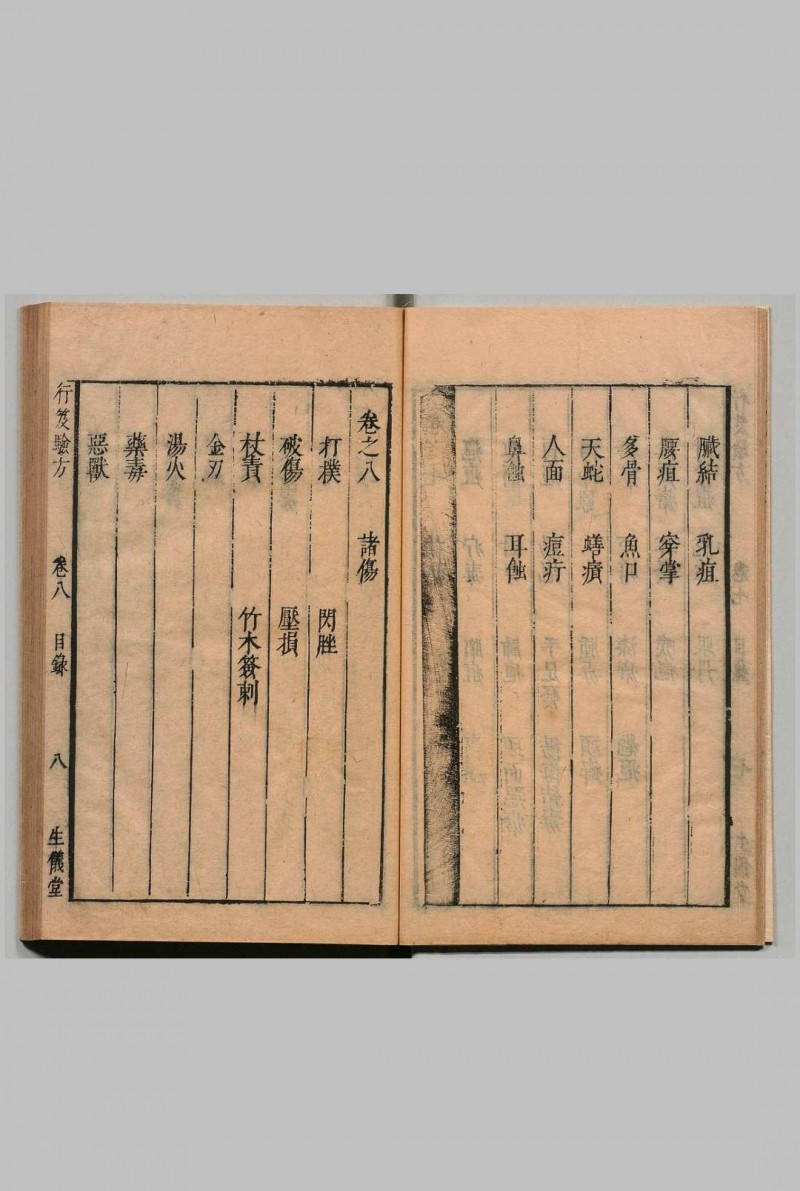 臟結 乳疽
腰疽 穿掌
多骨 魚口
天蛇 蟮㿉
人面 痘疔
鼻蝕 耳蝕
卷之八 諸傷
打撲 閃脞
破傷 壓損
杖責 竹木簽刺
金刃
湯火
藥毒
惡獸
行笈驗方 卷八 目錄 八 生儀堂